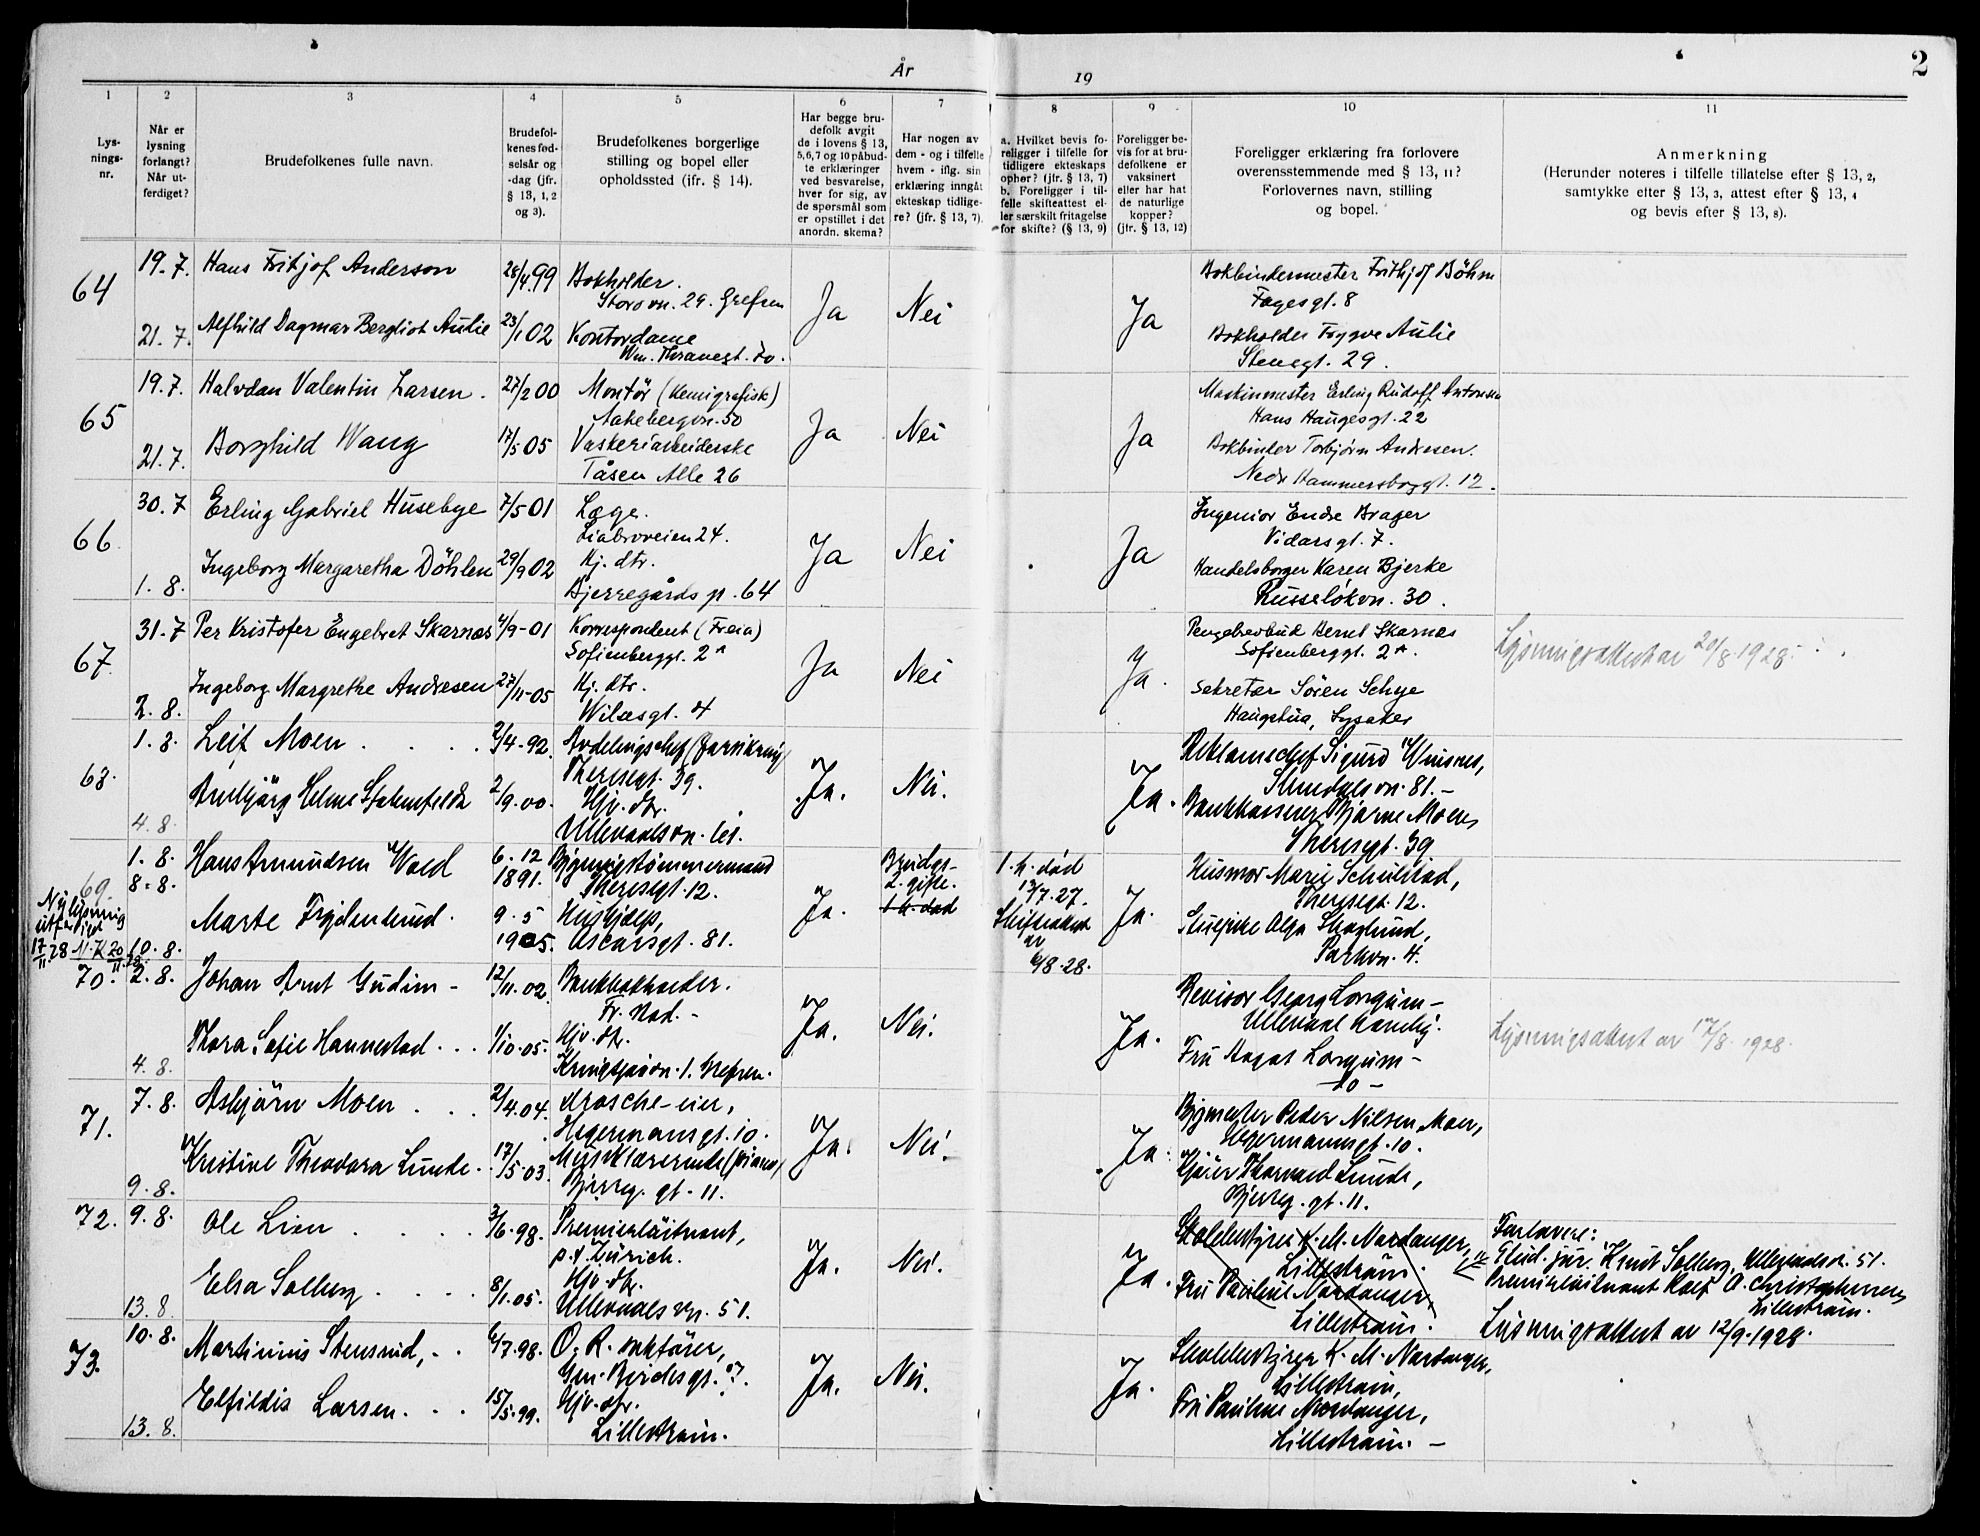 År 19
2
1 2 3 4 5 6 7 8 9 10 11
Lys-
nings-
nr.
Når er
lysning
forlangt?
Når ut-
ferdiget?
Brudefolkenes fulle navn.
Brudefol-
kenes fød-
selsår og
-dag (jfr.
§ 13, 1, 2
og 3).
Brudefolkenes borgerlige
stilling og bopel eller
opholdssted (ifr. § 14).
Har begge bru-
defolk avgit
de i lovens § 13,
5, 6, 7 og 10 påbud-
te erklæringer
ved besvarelse,
hver for sig, av
de spørsmål som
er opstillet i det
anordn. skema?
Har nogen av
dem - og i tilfelle
hvem - iflg. sin
erklæring inngåt
ekteskap tidlige-
re? (jfr. § 13, 7)
a. Hvilket bevis fo-
religger i tilfelle for
tidligere ekteskaps
ophør? (jfr. § 13, 7)
b. Foreligger i til-
felle skifteattest el-
ler særskilt fritagelse
for skifte? (§ 13, 9)
Foreligger be-
vis for at bru-
defolkene er
vaksinert
eller har hat
de naturlige
kopper?
(jfr. § 13, 12)
Foreligger erklæring fra forlovere
overensstemmende med § 13, 11?
Forlovernes navn, stilling
og bopel.
Anmerkning
(Herunder noteres i tilfelle tillatelse efter § 13, 2,
samtykke efter § 13, 3, attest efter § 13, 4
og bevis efter § 13, 8).
64
19. 7. Hans Fritjof Anderson 28/4 99 Bokholder.
Storovn. 29. Grefsen
21. 7. Alfhild Dagmar Bergliot Aulie 23/1 02 Kontordame
Wm. Thranesgt. 70.
Ja Nei Ja
Bokbindermester Frithjof Böhm
Fagesgt. 8
Bokholder Trygve Aulie
Stensgt. 29.
65
19. 7. Halvdan Valentin Larsen. 27/2 00 Montör (Kemigrafisk)
Aakebergvn. 50
21. 7. Borghild Wang 17/5 05 Vaskeriarbeiderske
Tåsen Alle 26
Ja Nei Ja
Maskinmester Erling Rudolf Antonsen
Hans Haugesgt. 22
Bokbinder Torbjørn Andresen.
Nedr Hammersborggt. 12.
66
30. 7 Erling Gabriel Husebye 7/5 01 Læge.
Liabroveien 24.
1. 8. Ingeborg Margaretha Döhlen 29/9 02 Hj. dtr.
Bjerregårds gt. 64
Ja Nei Ja
Ingeniør Endre Brager
Vidarsgt. 7.
Handelsborger Karen Bjerke
Russeløkvn. 30.
67.
31. 7 Per Kristofer Engebret Skarnæs 4/9-01 Korrespondent (Freia)
Sofienberggt. 2 A
2. 8. Ingeborg Margrethe Andresen 27/11-05 Hj. dtr.
Wilsesgt. 4
Ja Nei Ja.
Pengebrevbud Bernt Skarnæs
Sofienberggt. 2 A.
Sekretær Sören Schye
Haugstua, Lysaker
Lysningsattest av 20/8. 1928.
68.
1. 8. Leif Moen 2/4-92. Avdelingschef
Theresegt. 39.
4. 8. 2/9.00. Hjv. dtr.
Ullevaalsvn. 101.
Ja. Nei. Ja.
Reklamechef Sigurd
81.-
Bankkasserer Bjarne Moen
Theresegt. 39
69
Ny lysning
utferdiget
17/11.28 M. K 20/11.28
1. 8.
8. 8. Hans Amundsen Wold 6. 12
1891. Bygningstømmermand
Theresegt. 12.
10. 8. Marte Frydenlund. 9. 5
1905. Hushjelp,
Oscarsgt. 81.
Ja. Brudgs-
2. gifte.
1. h. død
1. h. død
13/7. 27.
Skifteattest
av
6/8. 28.
Ja.
Husmor Marie Schulstad,
Theresegt. 12.
Stuepike Olga Skoglund,
Parkvn. 4.
70.
2. 8. Johan Arnt Gudim - 12/11.02. Bankbokholder.
Fr. stad. -
4. 8. Thora Sofie Hannestad. 1/10.05. Hjv. dtr.
Kringsjaavn. 1. Grefsen.
Ja. Nei. Ja.
Revisor Georg Lorgum -
Ullevaal
Fru Aagot Lorgum -
- do -
Lysningsattest av 17/8. 1928.
71.
7. 8. Asbjørn Moen 2/4.04. Drosche-eier,
Hegermannsgt. 10.
9. 8. Kristine Theodora Lunde. 17/5.03. Musiklærerinde (piano)
Bjerreg. gt. 11.
Ja. Nei. Ja.
Bygmester Peder Nilsen Moen,
Hegermannsgt. 10.
Thorvald Lunde,
Bjerreg. gt. 11.
72.
9. 8. Ole Lien 3/6.98. Premierløitnant,
p. t. Zürich.
13. 8 Elsa Solberg 8/1.05. Hjv. dtr.
Ullevaals vn. 51.
Ja. Nei. Ja.
Skolebestyrer K. M. Nordanger,
Lillestrøm.
Fru Pauline Nordanger,
Lillestrøm.
Forlovere:
Stud. jur. Knut Solberg, Ullevaalsv. 51.
Premierløitnant Rolf A. Christophersen
Lillestrøm.
Lysningsattest av 12/9. 1928.
73.
10. 8. Martinius Stensrud, 6/7.98. O. R. sakfører,
Gen. Birchsgt. ?.
13. 8. Elfildis Larsen. 15/5.99. Hjv. dtr.
Lillestrøm.
Ja. Nei. Ja.
Skolebestyrer K. M. Nordanger,
Lillestrøm,
Fru Pauline Nordanger,
Lillestrøm. -